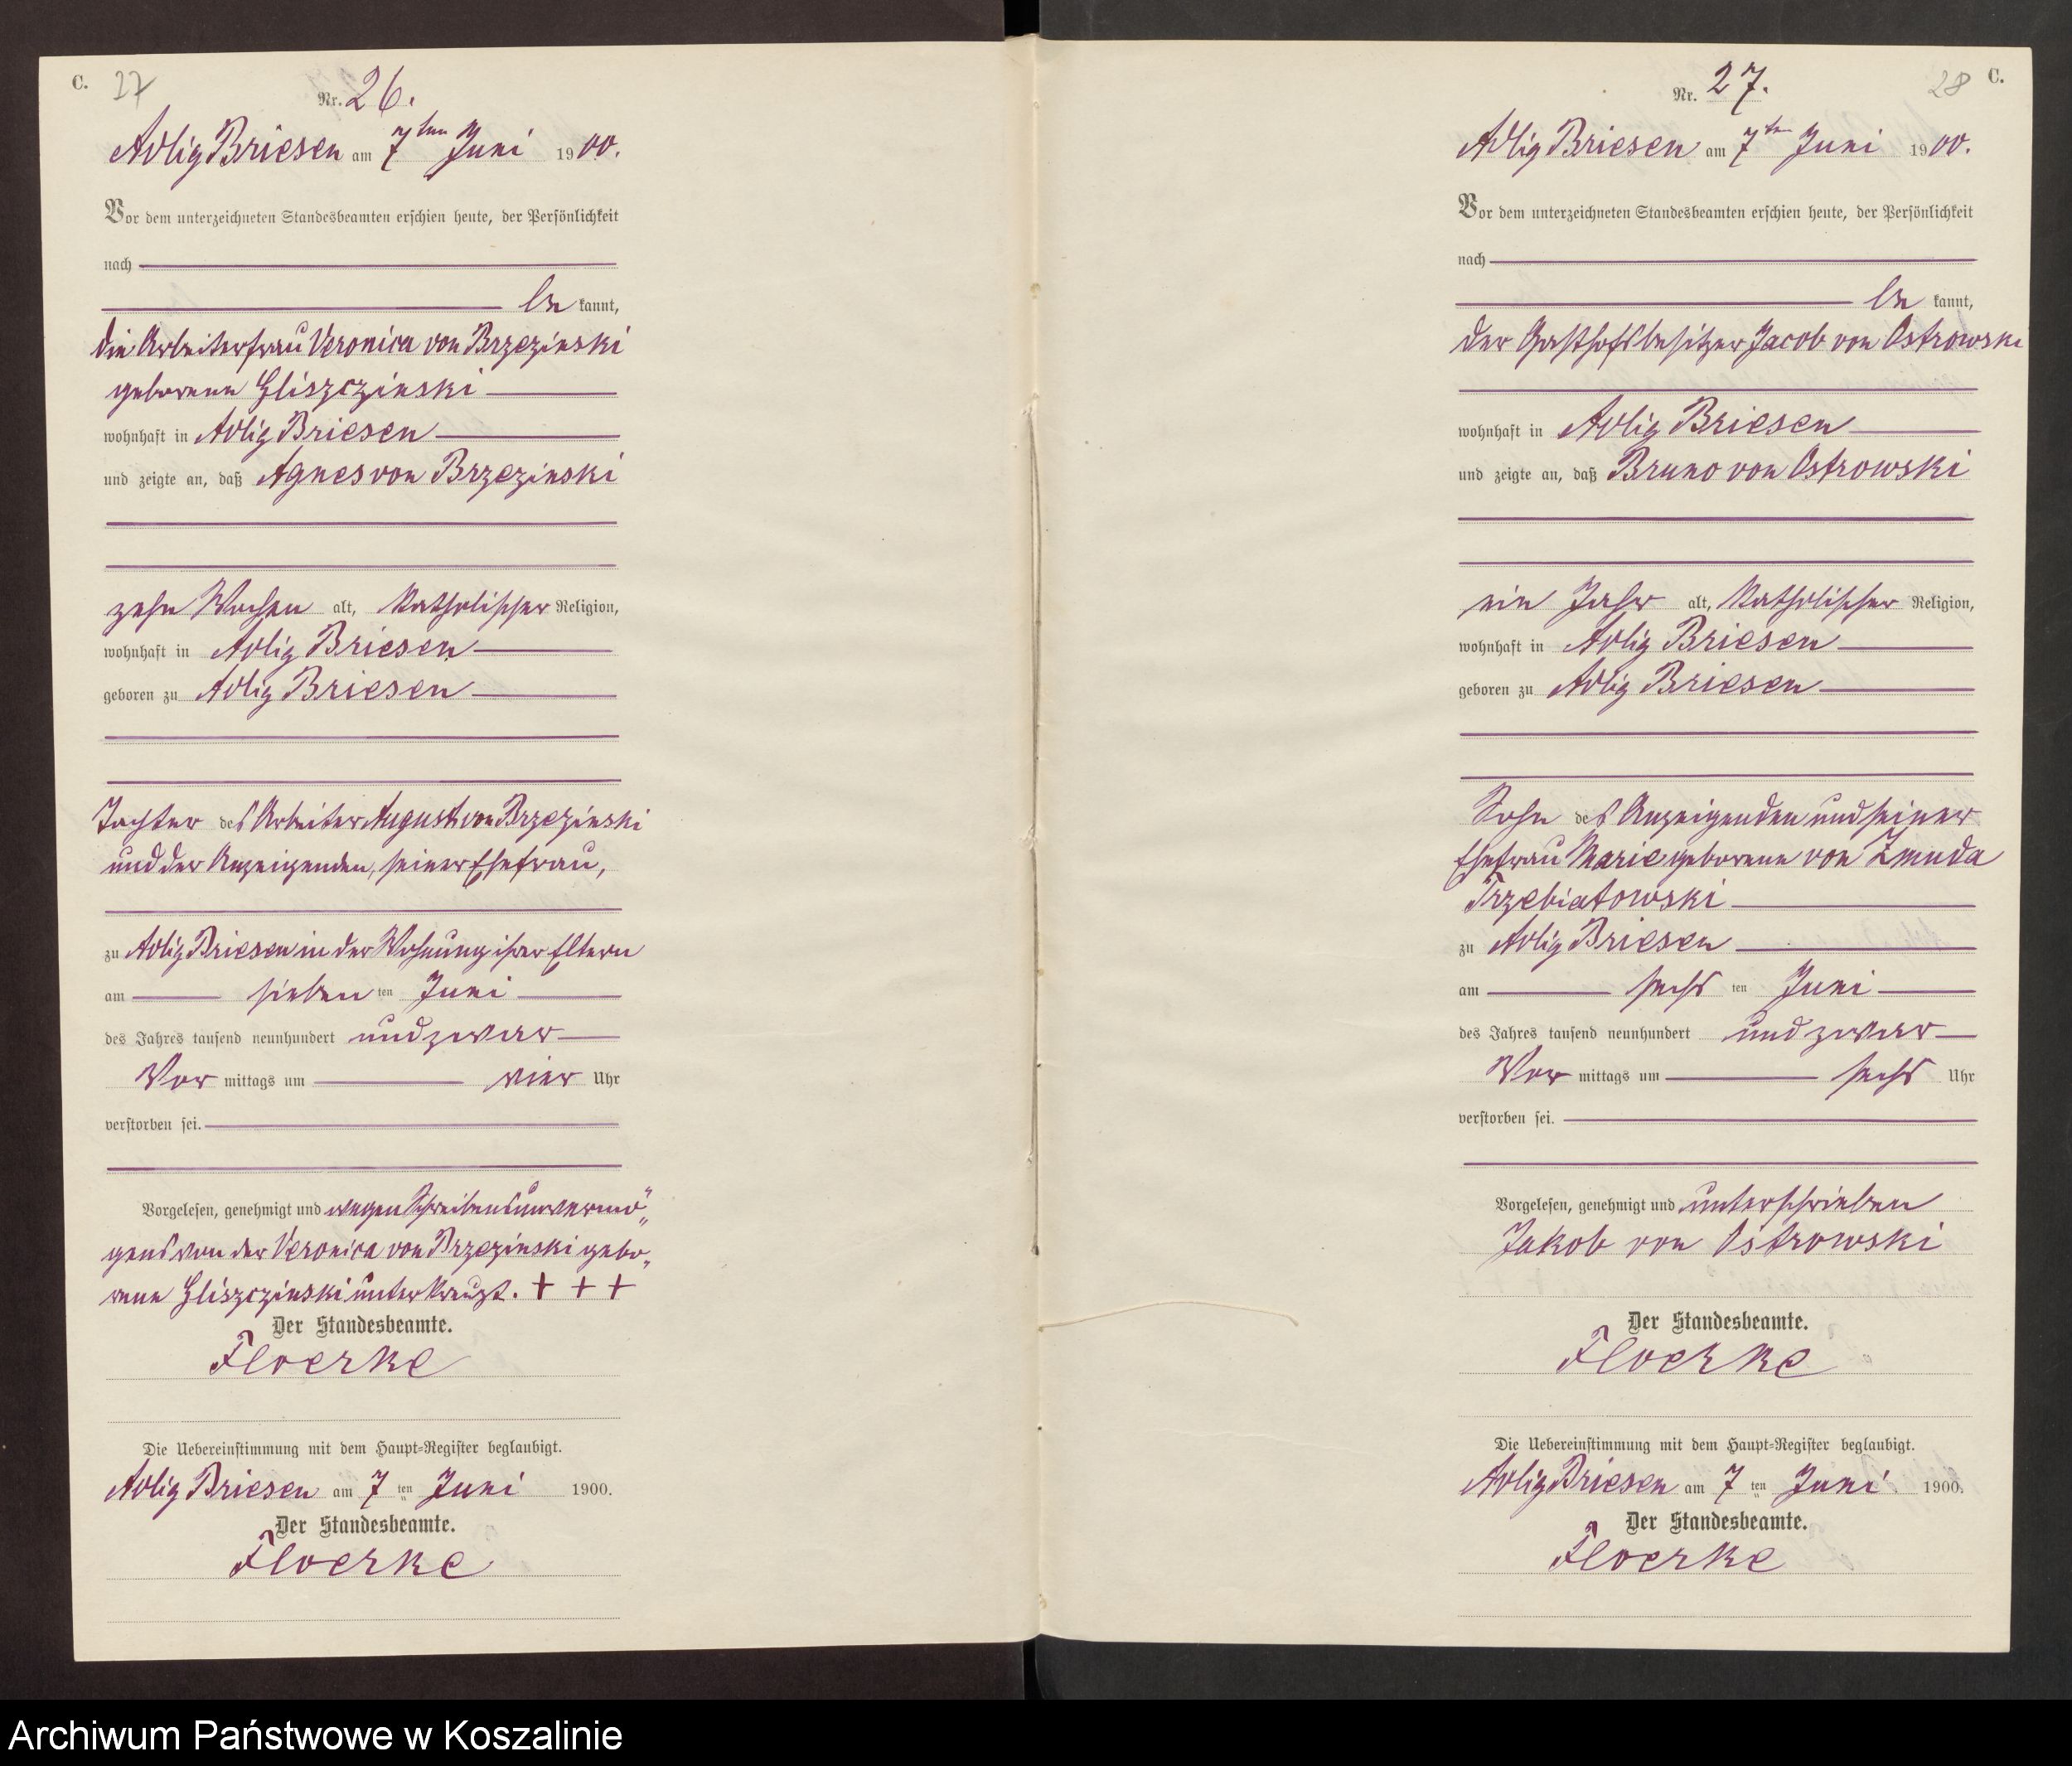 C. 27
Nr. 26.
Adlig Briesen am 7ten Juni 1900.
Vor dem unterzeichneten Standesbeamten erschien heute, der Persönlichkeit
nach
be kannt,
die Arbeiterfrau Veronica von Brzezinski
geborene Gliszczinski
wohnhaft in Adlig Briesen
und zeigte an, daß Agnes von Brzezinski
zehn Wochen alt, katholischer Religion,
wohnhaft in Adlig Briesen
geboren zu Adlig Briesen
Tochter des Arbeiter August von Brzezinski
und der Anzeigenden, seiner Ehefrau,
zu Adlig Briesen in der Wohnung ihrer Eltern
am sieben ten Juni
des Jahres tausend neunhundert und zwar
Vor mittags um vier Uhr
verstorben sei.
Vorgelesen, genehmigt und wegen Schreibensunvermö„
gens von der Veronica von Brzezinski gebo„
rene Gliszczinski unterkreuzt. + + +
Der Standesbeamte.
Floerke
Die Uebereinstimmung mit dem Haupt-Register beglaubigt.
Adlig Briesen am 7 ten Juni 1900.
Der Standesbeamte.
Floerke
28 C.
Nr. 27.
Adlig Briesen am 7ten Juni 1900.
Vor dem unterzeichneten Standesbeamten erschien heute, der Persönlichkeit
nach
be kannt,
der Gasthofsbesitzer Jacob von Ostrowski
wohnhaft in Adlig Briesen
und zeigte an, daß Bruno von Ostrowski
ein Jahr alt, katholischer Religion,
wohnhaft in Adlig Briesen
geboren zu Adlig Briesen
Sohn des Anzeigenden und seiner
Ehefrau Marie geborene von Zmuda
Trzebiatowski
zu Adlig Briesen
am sechs ten Juni
des Jahres tausend neunhundert und zwar
Vor mittags um sechs Uhr
verstorben sei.
Vorgelesen, genehmigt und unterschrieben
Jakob von Ostrowski
Der Standesbeamte.
Floerke
Die Uebereinstimmung mit dem Haupt-Register beglaubigt.
Adlig Briesen am 7 ten Juni 1900.
Der Standesbeamte.
Floerke
Archiwum Państwowe w Koszalinie